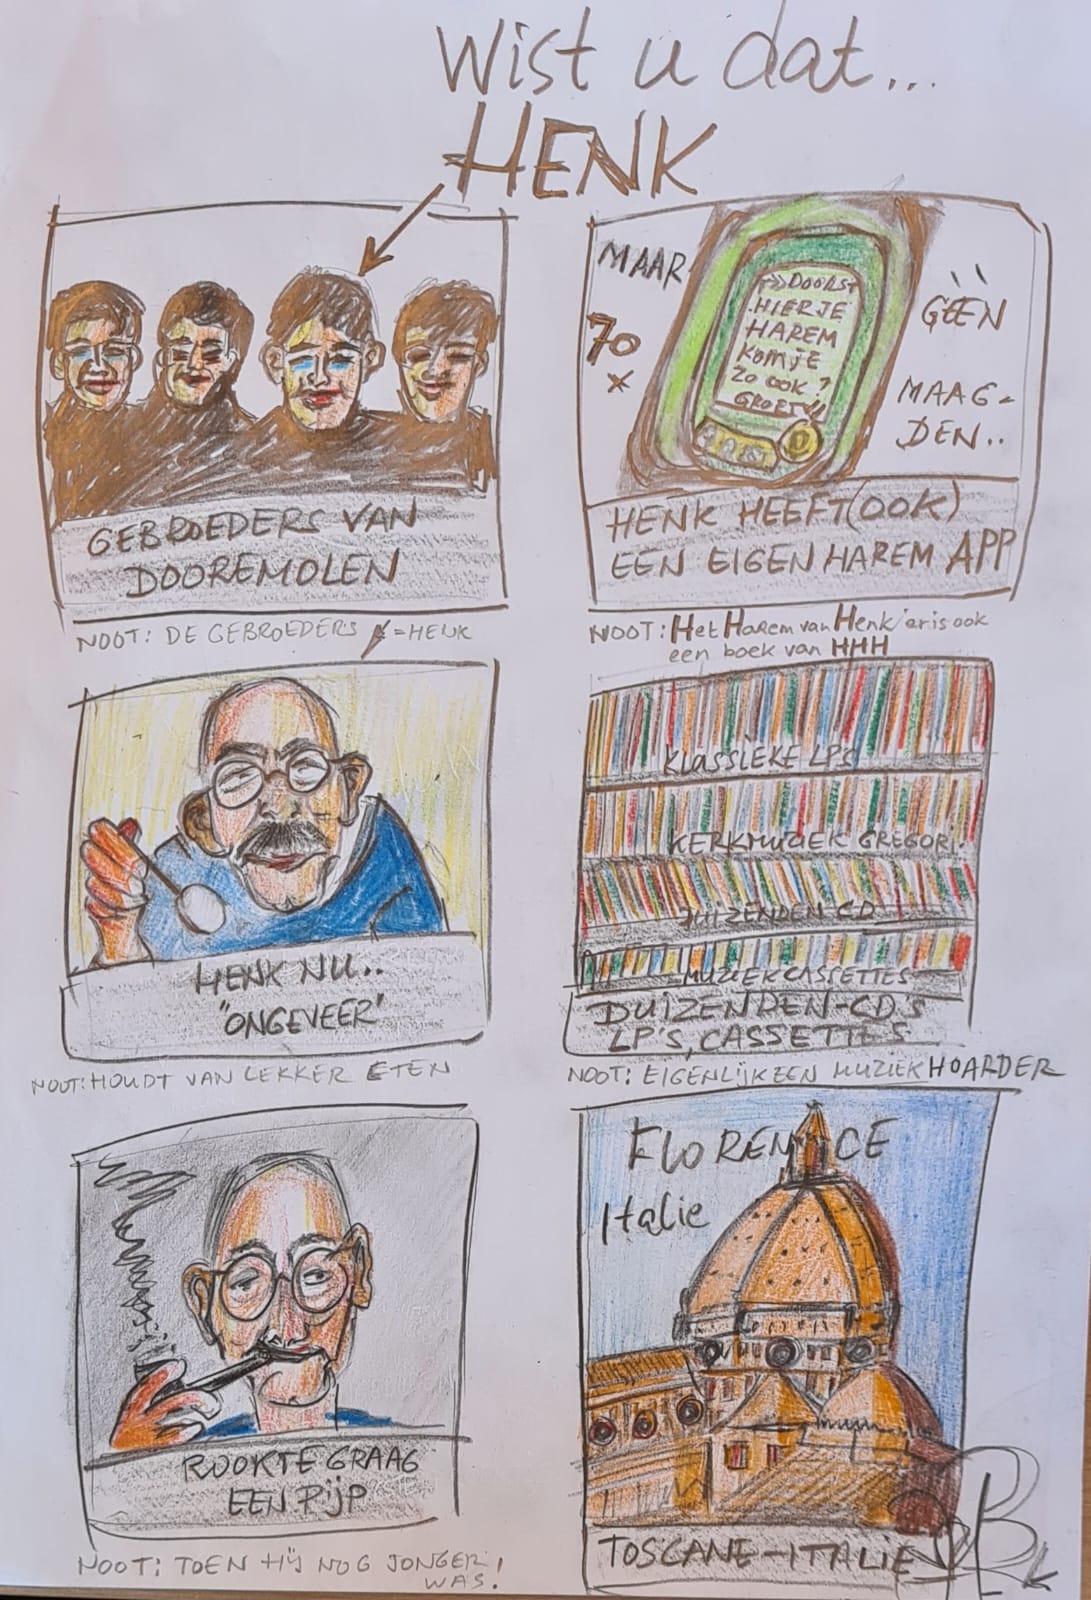 Wist u dat...
HENK
GEBROEDERS VAN
DOOREMOLEN
NOOT: DE GEBROEDERS = HENK
MAAR
70
x
DOORST
HIER JE
HAREM
KOM JE
ZO OOK?
GROET
GÈÈN
MAAG-
DEN..
HENK HEEFT (OOK)
EEN EIGEN HAREM APP
NOOT: Het Harem van Henk/er is ook
een boek van HHH
HENK NU..
"ONGEVEER"
NOOT: HOUDT VAN LEKKER ETEN
KLASSIEKE LP'S
KERKMUZIEK GREGORI.
DUIZENDEN CD
MUZIEKCASSETTES
DUIZENDEN-CD'S
LP'S, CASSETTES
NOOT: EIGENLIJK EEN MUZIEK HOARDER
ROOKTE GRAAG
EEN PIJP
NOOT: TOEN HIJ NOG JONGER
WAS!
FLORENCE
Italie
TOSCANE-ITALIE